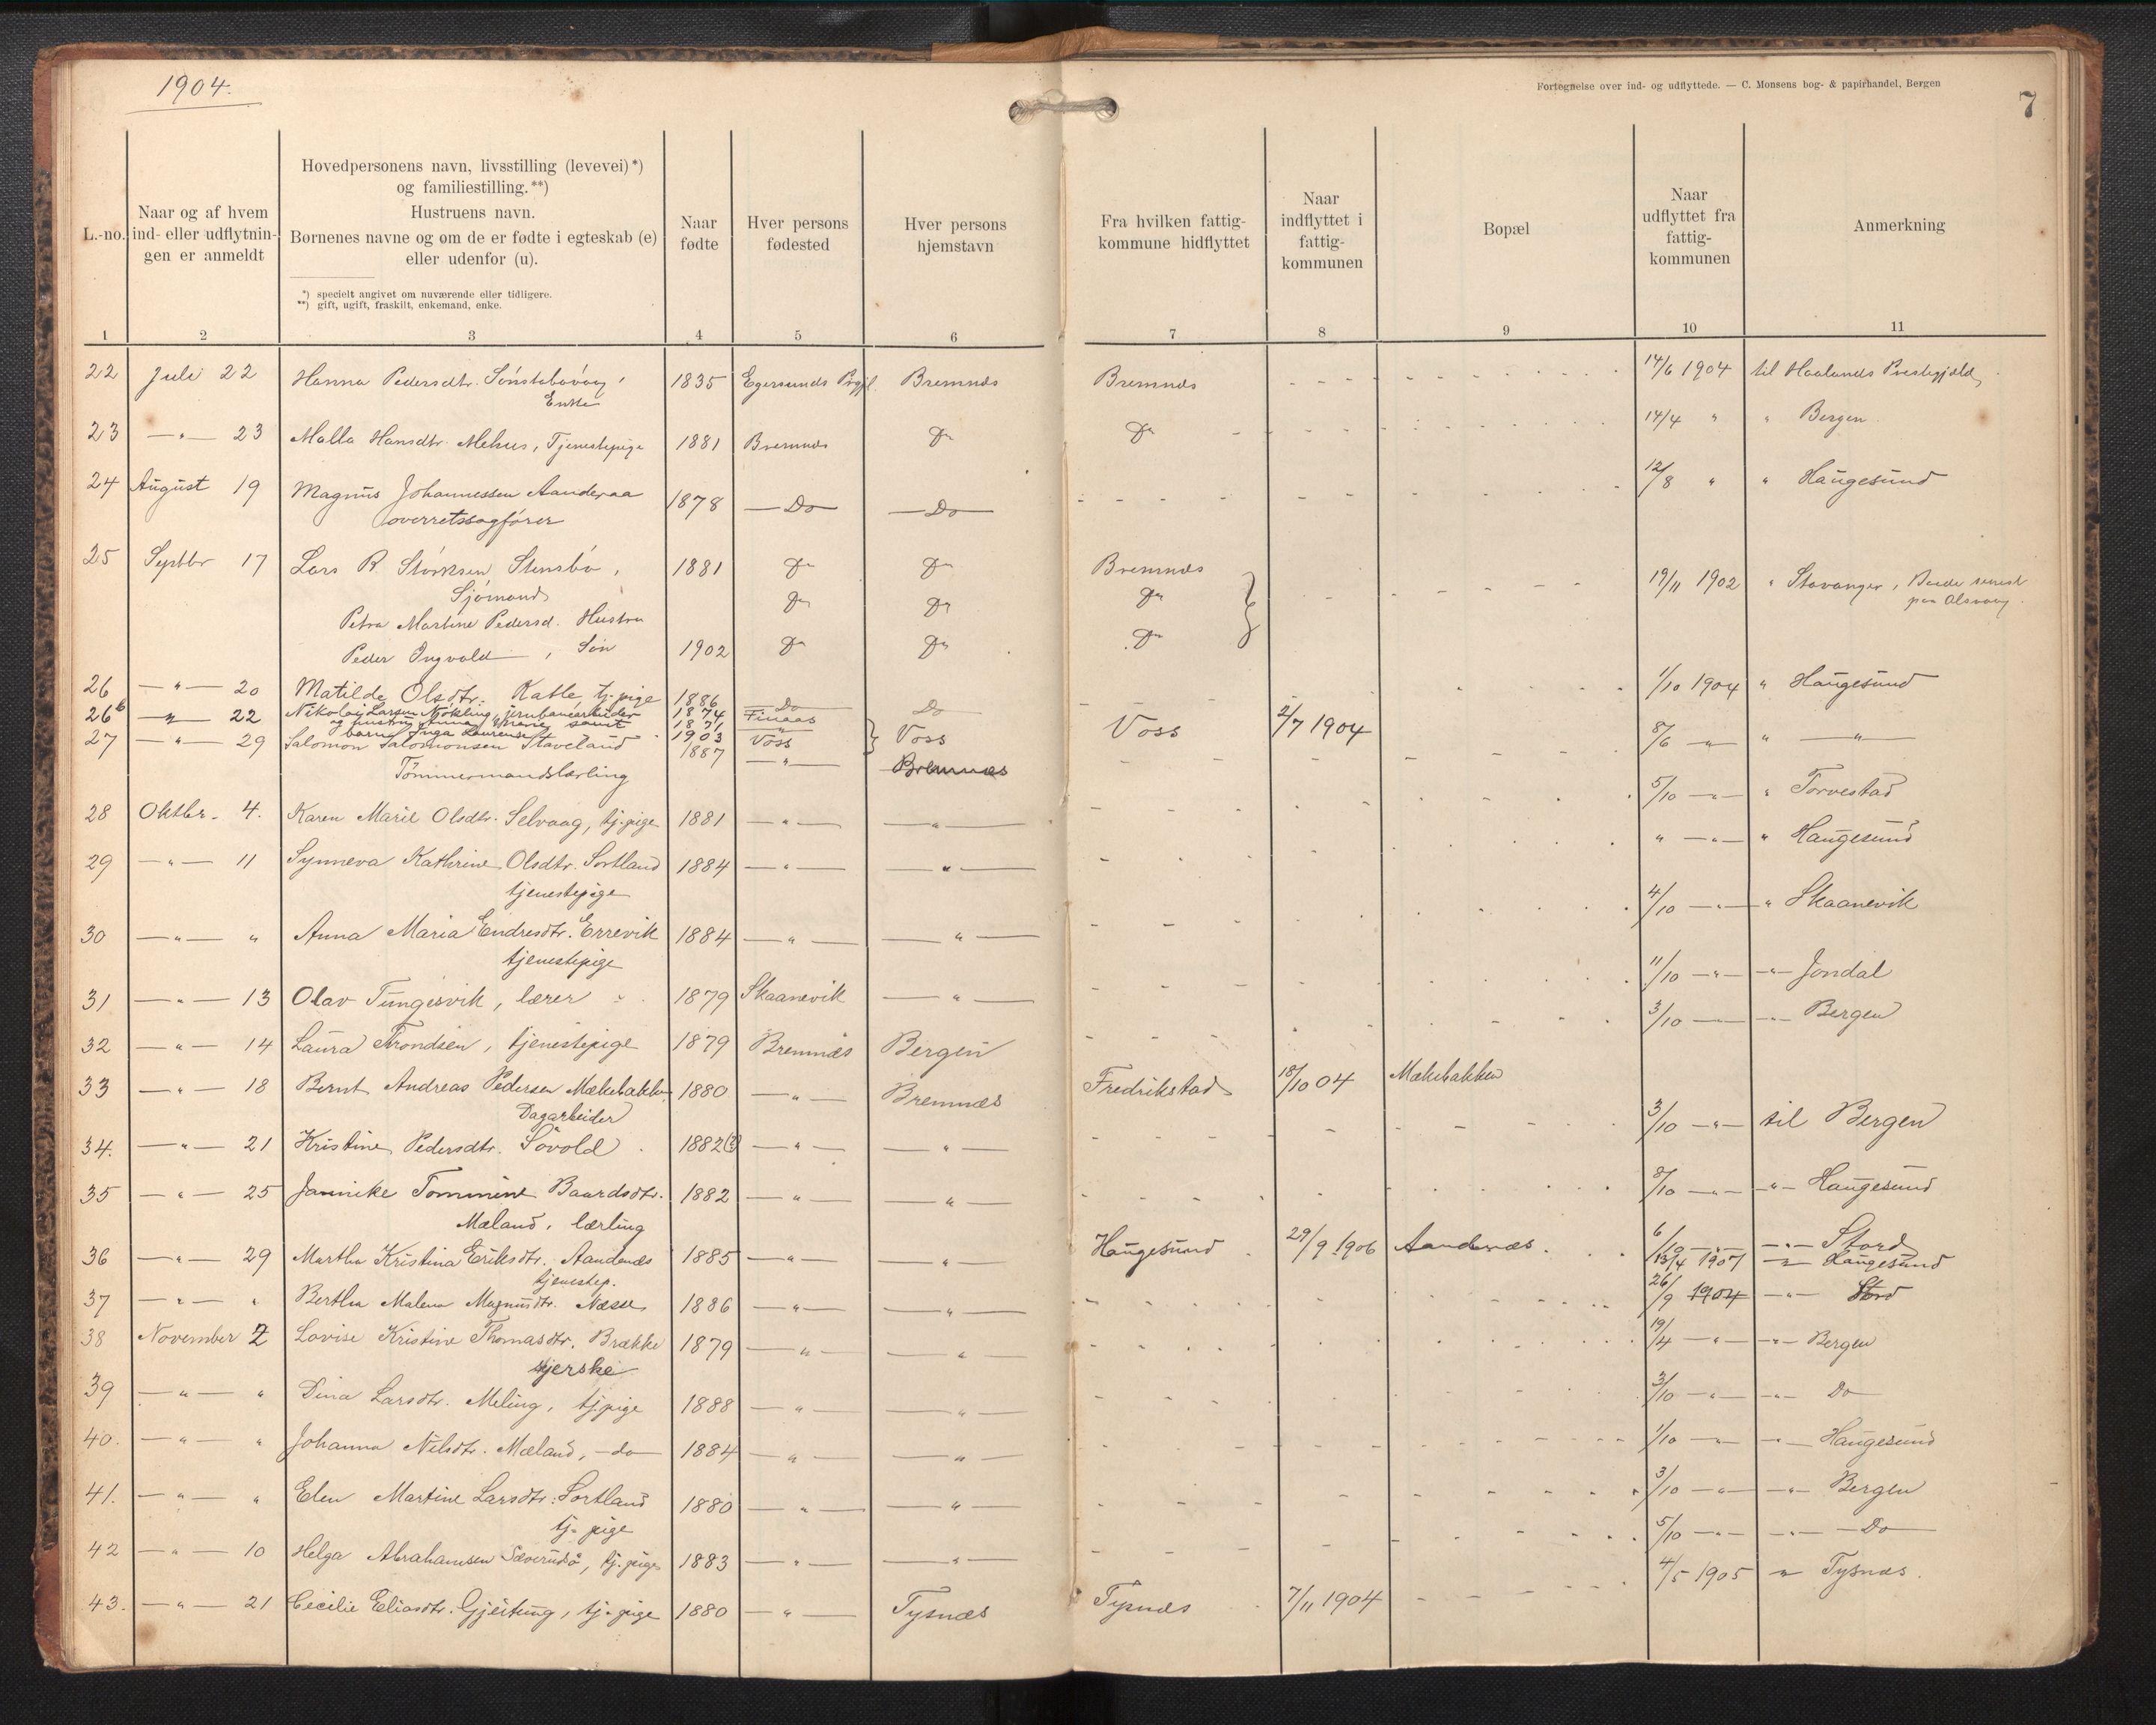 1904.
Fortegnelse over ind- og udflyttede. — C. Monsens bog- & papirhandel, Bergen
7
L.-no.
Naar og af hvem
ind- eller udflytnin-
gen er anmeldt
Hovedpersonens navn, livsstilling (levevei)*)
og familiestilling.**)
Hustruens navn.
Børnenes navne og øm de er fødte i egteskab (e)
eller udenfor (u).
*) specielt angivet om nuværende eller tidligere.
**) gift, ugift, fraskilt, enkemand, enke.
Naar
fødte
Hver persons
fødested
Hver persons
hjemstavn
Fra hvilken fattig-
kommune hidflyttet
Naar
indflyttet i
fattig-
kommunen
Bopæl
Naar
udflyttet fra
fattig-
kommunen
Anmerkning
1 2 3 4 5 6 7 8 9 10 11
22 Juli 22 Hanna Pedersdtr. 1835 Egersunds Bremnæs Bremnæs 14/6 1904 til Haalands Prestegjæld
Enke
23 —„— 23 Malla Hansdtr. Mehus, Tjenestepige 1881 Bremnæs Do Do 14/4 „ „ Bergen.
24 August 19 Magnus Johannessen Aanderaa 1878 —Do— —Do— 12/8 „ „ Haugesund
overretssagfører
25 Septbr 17 Lars B. Størksen Stensbø, 1881 Do Do Bremnæs 19/11 1902 „ Stavanger, Boede senest
Sjømand Do Do Do paa Alsvaag.
Petra Martine Pedersd. Hustru
Peder Ingvald, Søn 1902 Do Do Do
26 —„— 20 Matilde Olsdtr. Katle, tj.pige 1886 Do Do 1/10 1904 „ Haugesund
26b —„— 22 Nikolai Larsen Nøkling, jernbanearbeider 1874 Finaas Voss Voss 2/7 1904 8/6 —„— „ —„—
og hustru Anna Marie samt 1871 —„—
barn Inga Laurense 1903 Voss
27 —„— 29 Salomon Salomonsen Staveland 1887 —„— Bremnæs 5/10 —„— „ Torvestad
Tømmermandslærling
28 Oktbr. 4. Karen Marie Olsdtr. Selvaag, tj.pige 1881 —„— —„— „ —„— „ Haugesund
29 —„— 11 Synneva Kathrine Olsdtr. Sortland 1884 —„— —„— 4/10 —„— „ Skaanevik
tjenestepige
30 —„— „ Anna Maria Endresdtr. Errevik 1884 —„— —„— 11/10 —„— —„— Jondal
tjenestepige
31 —„— 13 Olav Tungesvik, lærer 1879 Skaanevik —„— 3/10 —„— —„— Bergen
32 —„— 14 Laura Trondsen, tjenestepige 1879 Bremnæs Bergen
33 —„— 18 Bernt Andreas Pedersen Mækebakken 1880 —„— Bremnæs Fredrikstad 18/10 04 Mækebakken
Dagarbeider
34. —„— 21 Kristine Pedersdtr. Søvold 1882(?) —„— —„— 3/10 —„— til Bergen
35 —„— 25 Jannike Tommine Baardsdtr. 1882 —„— —„— 8/10 —„— —„— Haugesund
Mæland, lærling
36 —„— 29 Martha Kristina Eriksdtr. Aandenæs 1885 —„— —„— Haugesund 29/9 1906 Aandenæs 6/10 —„— —„— Stord
tjenestep. 13/4 1907 —„— Haugesund
37 —„— „ Bertha Malena Magnusdtr. Næsse 1886 —„— —„— 26/9 1904 —„— Stord
38 November 2 Lovise Kristine Thomasdtr. Brække 1879 —„— —„— 19/4 —„— —„— Bergen
syerske
39 —„— „ Dina Larsdtr. Meling, tj.pige 1888 —„— —„— 3/10 —„— —„— Do
40. —„— „ Johanna Nilsdtr. Mæland, —do— 1884 —„— —„— 1/10 —„— —„— Haugesund
41. —„— „ Elen Martine Larsdtr. Sortland 1880 —„— —„— 3/10 —„— —„— Bergen
tj. pige
42 —„— 10 Helga Abrahamsen, tj.pige 1883 —„— —„— 5/10 —„— —„— Do
43. —„— 21 Cecilie Eliasdtr. Gjeitung, tj.pige 1880 —„— Tysnæs Tysnæs 7/11 1904 4/5 1905 —„— Tysnæs.